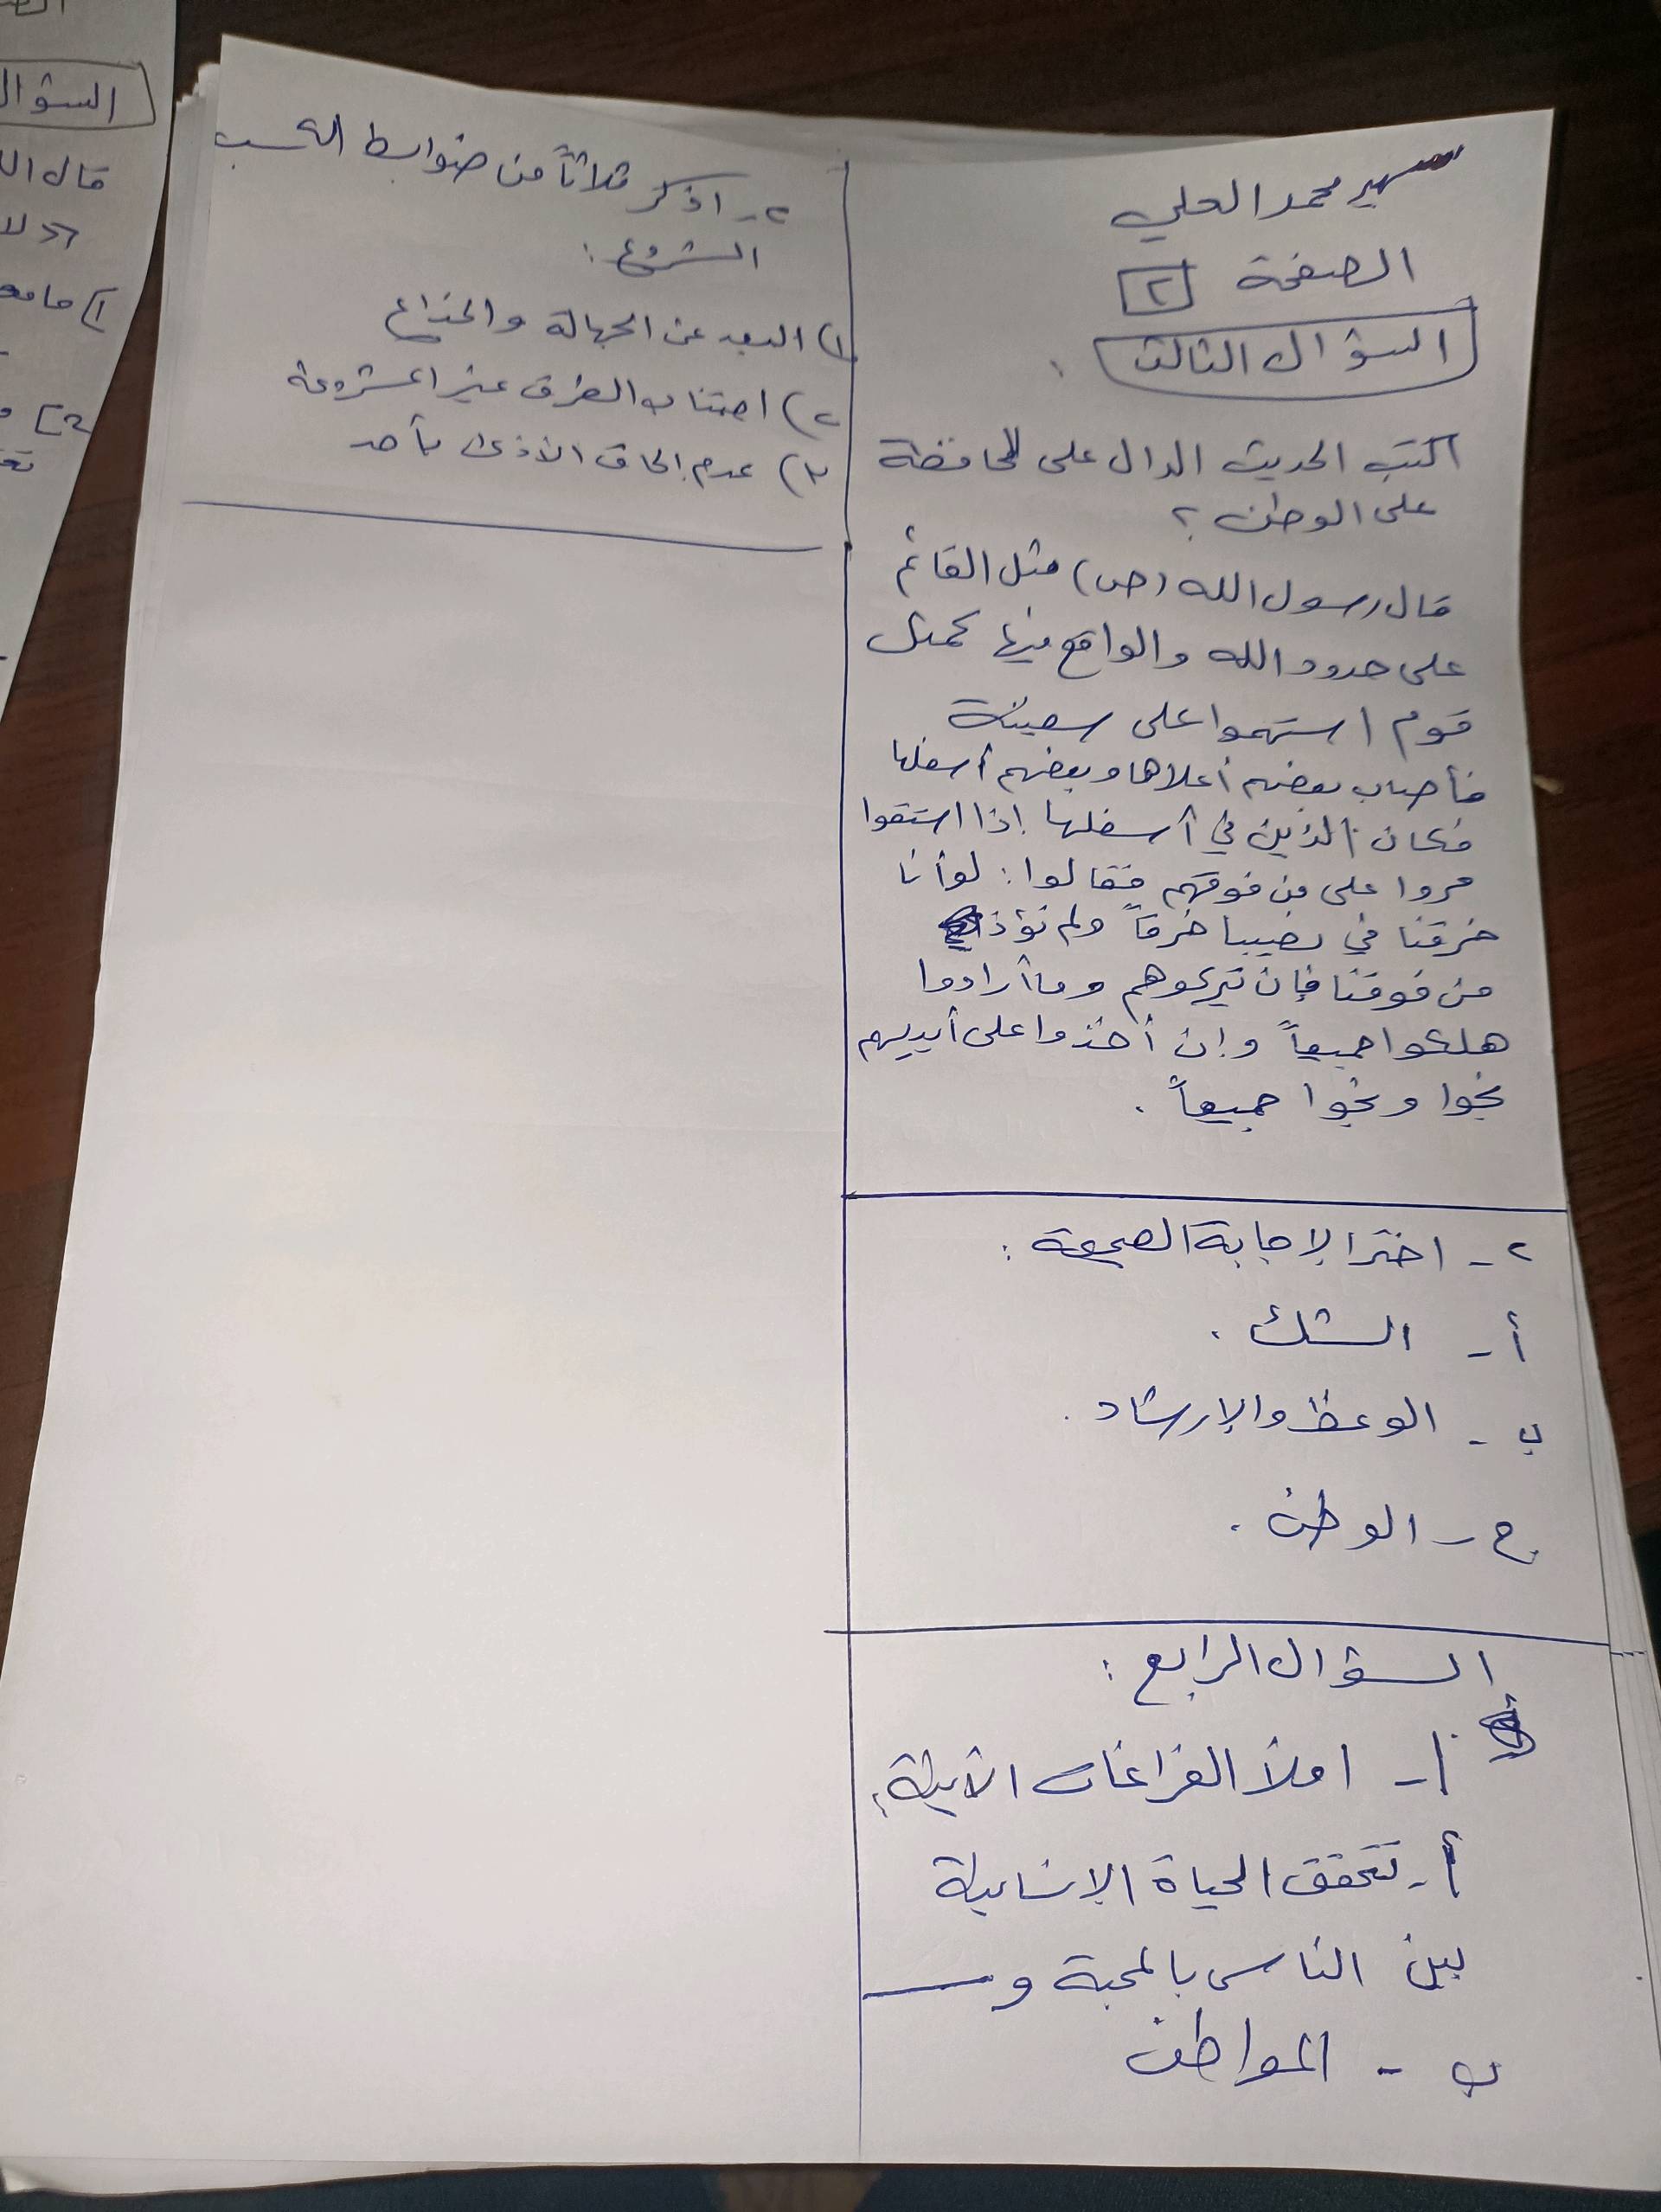 سهير محمد العلي
الصفحة ٢
السؤال الثالث :
اكتب الحديث الدال على المحافظة
على الوطن ؟
قال رسول الله (ص) مثل القائم
على حدود الله والواقع فيها كمثل
قوم استهموا على سفينة
فأصاب بعضهم أعلاها وبعضهم أسفلها
فكان الذين في أسفلها إذا استقوا
مروا على من فوقهم فقالوا : لو أنا
خرقنا في نصيبنا خرقاً ولم نؤذ
من فوقنا فإن تركوهم وما أرادوا
هلكوا جميعاً وإن أخذوا على أيديهم
نجوا ونجوا جميعاً .
٢ - اختر الإجابة الصحيحة :
أ - الشك .
ب - الوعظ والإرشاد .
ج - الوطن .
السؤال الرابع :
١ - املأ الفراغات الآتية :
أ - تتحقق الحياة الإنسانية
بين الناس بالمحبة و
ب - المواطن
٢ - اذكر ثلاثاً من ضوابط الكسب
المشروع :
١) البعد عن الجهالة والخداع
٢) اجتناب الطرق غير المشروعة
٣) عدم إلحاق الأذى بأحد
السؤال
قال ال